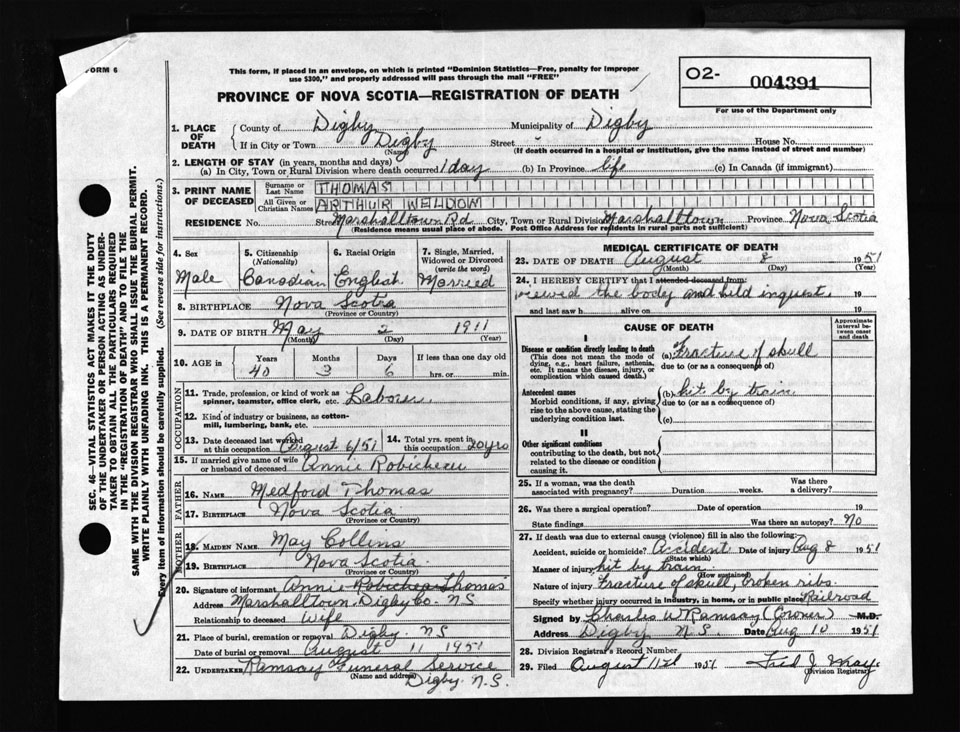 FORM 6
This form, if placed in an envelope, on which is printed "Dominion Statistics—Free, penalty for improper
use $300," and properly addressed will pass through the mail "FREE"
O2- 004391
For use of the Department only
PROVINCE OF NOVA SCOTIA—REGISTRATION OF DEATH
1. PLACE OF DEATH
County of Digby Municipality of Digby
If in City or Town Digby Street - House No.
(Name) (If death occurred in a hospital or institution, give the name instead of street and number)
2. LENGTH OF STAY (in years, months and days)
(a) In City, Town or Rural Division where death occurred 1 day (b) In Province life (c) In Canada (if immigrant)
3. PRINT NAME OF DECEASED
Surname or Last Name THOMAS
All Given or Christian Names ARTHUR WELDON
RESIDENCE No. Street Marshalltown Rd City, Town or Rural Division Marshalltown Province Nova Scotia
(Residence means usual place of abode. Post Office Address for residents in rural parts not sufficient)
4. Sex
Male
5. Citizenship (Nationality)
Canadian
6. Racial Origin
English
7. Single, Married, Widowed or Divorced (write the word)
Married
8. BIRTHPLACE Nova Scotia
(Province or Country)
9. DATE OF BIRTH May 2 1911
(Month) (Day) (Year)
10. AGE in Years Months Days If less than one day old
40 3 6 hrs. or min.
OCCUPATION
11. Trade, profession, or kind of work as
spinner, teamster, office clerk, etc. Laborer
12. Kind of industry or business, as cotton-
mill, lumbering, bank, etc.
13. Date deceased last worked
at this occupation August 6/51
14. Total yrs. spent in
this occupation 20 yrs
15. If married give name of wife
or husband of deceased Annie Robicheau
FATHER
16. NAME Medford Thomas
17. BIRTHPLACE Nova Scotia
(Province or Country)
MOTHER
18. MAIDEN NAME May Collins
19. BIRTHPLACE Nova Scotia
(Province or Country)
20. Signature of informant Annie Robicheau Thomas
Address Marshalltown, Digby Co. N.S
Relationship to deceased Wife
21. Place of burial, cremation or removal Digby N.S
Date of burial or removal August 11 1951
22. UNDERTAKER Ramsay Funeral Service
(Name and address)
Digby N.S.
MEDICAL CERTIFICATE OF DEATH
23. DATE OF DEATH August 8 1951
(Month) (Day) (Year)
24. I HEREBY CERTIFY that I attended deceased from
viewed the body and held inquest 19
and last saw h alive on 19
CAUSE OF DEATH
Approximate interval between onset and death
I
Disease or condition directly leading to death
(This does not mean the mode of
dying, e.g., heart failure, asthenia,
etc. It means the disease, injury, or
complication which caused death.)
(a) Fracture of skull
due to (or as a consequence of)
Antecedent causes
Morbid conditions, if any, giving
rise to the above cause, stating the
underlying condition last.
(b) hit by train
due to (or as a consequence of)
(c)
II
Other significant conditions
contributing to the death, but not
related to the disease or condition
causing it.
25. If a woman, was the death
associated with pregnancy? Duration weeks. Was there a delivery?
26. Was there a surgical operation? Date of operation 19
State findings Was there an autopsy? No
27. If death was due to external causes (violence) fill in also the following:
Accident, suicide or homicide? Accident Date of injury Aug 8 1951
(State which)
Manner of injury hit by train
(How sustained)
Nature of injury Fracture of skull, broken ribs
Specify whether injury occurred in industry, in home, or in public place Railroad
Signed by Charles W Ramsay (Coroner) M.D.
Address Digby N.S. Date Aug 10 1951
28. Division Registrar's Record Number
29. Filed August 11th 1951
(Division Registrar)
SEC. 46—VITAL STATISTICS ACT MAKES IT THE DUTY
OF THE UNDERTAKER OR PERSON ACTING AS UNDER-
TAKER TO OBTAIN ALL THE PARTICULARS REQUIRED
IN THE "REGISTRATION OF DEATH" AND TO FILE THE
SAME WITH THE DIVISION REGISTRAR WHO SHALL ISSUE THE BURIAL PERMIT.
WRITE PLAINLY WITH UNFADING INK. THIS IS A PERMANENT RECORD.
Every item of information should be carefully supplied. (See reverse side for instructions.)